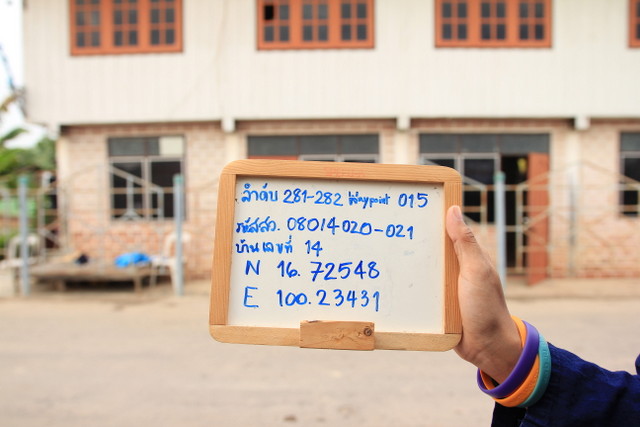 ลำดับ 281-282 waypoint 015
รหัสสว. 08014020-021
บ้านเลขที่ 14
N 16.72548
E 100.23431